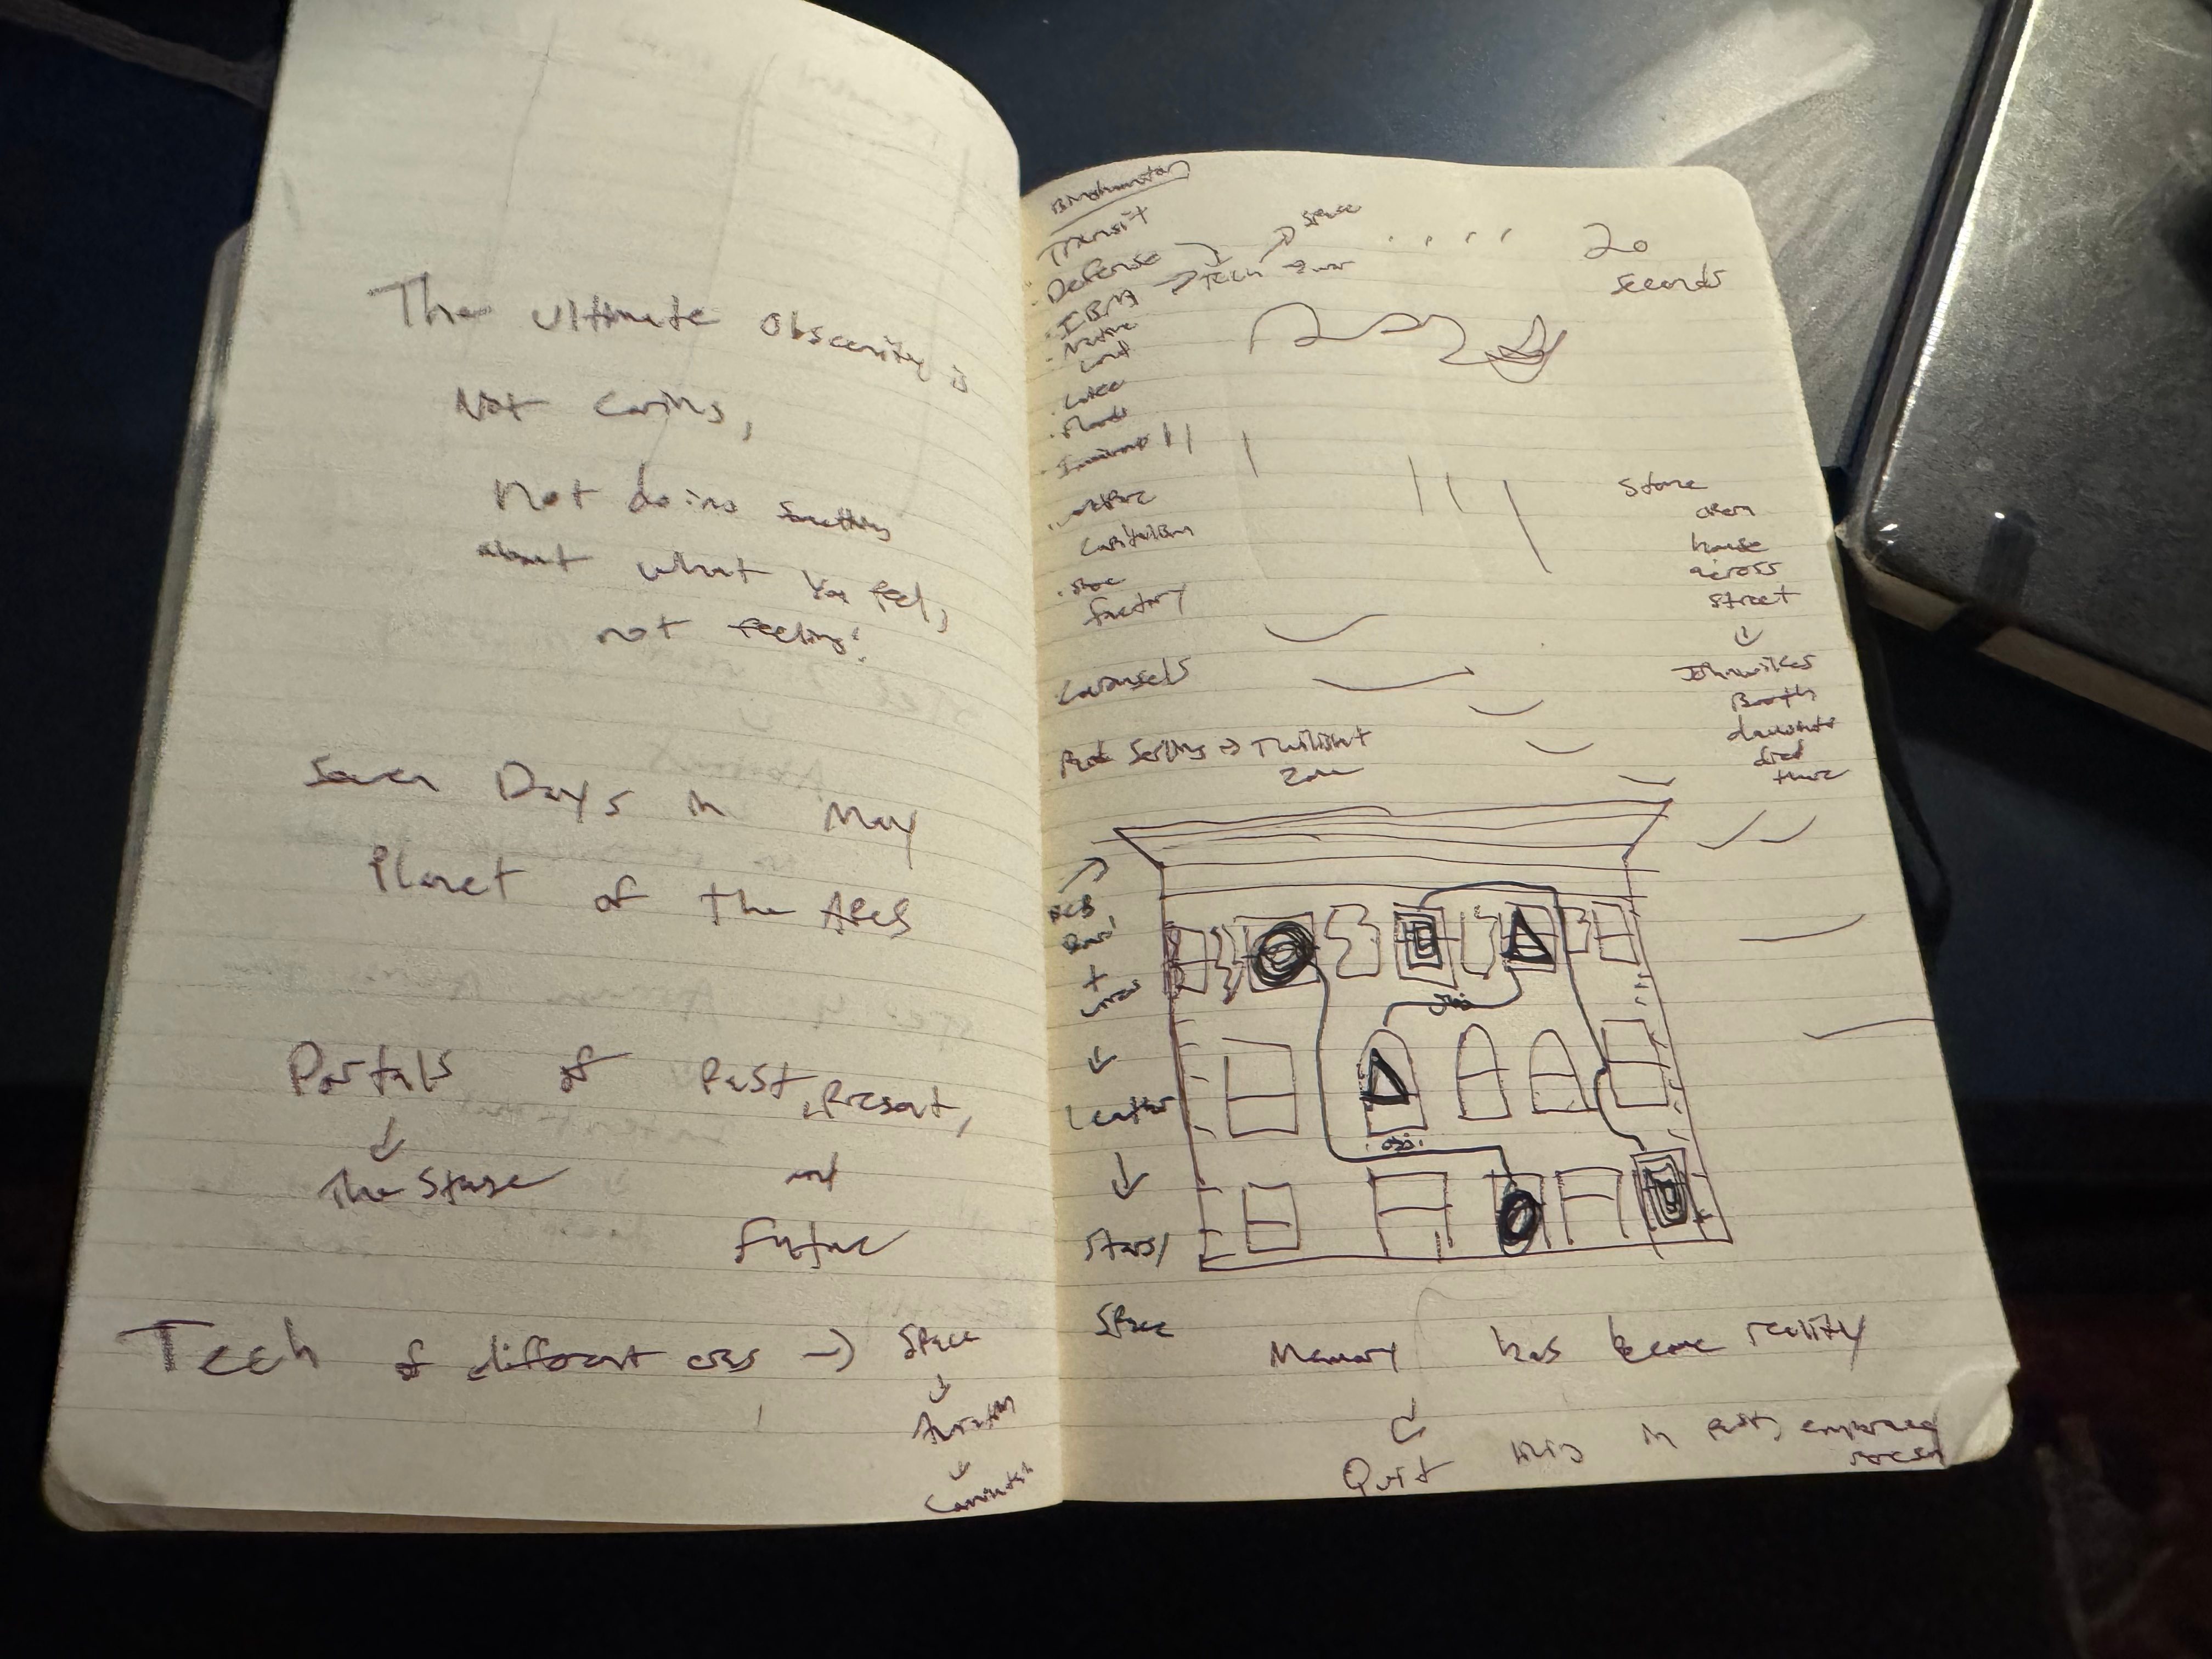 The ultimate obscenity is
Not caring,
not doing something
about what you feel,
not feeling!
Seven Days in May
Planet of the Apes
Portals of Past, Present,
↓
The Stage and
Future
Tech of different eras → Space
↓
↓
Binghamton
Transit
· Defense
· IBM → Tech → war
space
· Native
Land
· Shoe
factory
Carousels
Rod Serling → Twilight
Zone
20
seconds
Stone
opera
house
across
street
↓
John Wilkes
Booth
died
there
+
↓
Leather
↓
Stars/
Space
Memory has become reality
↓
Quit living in past,